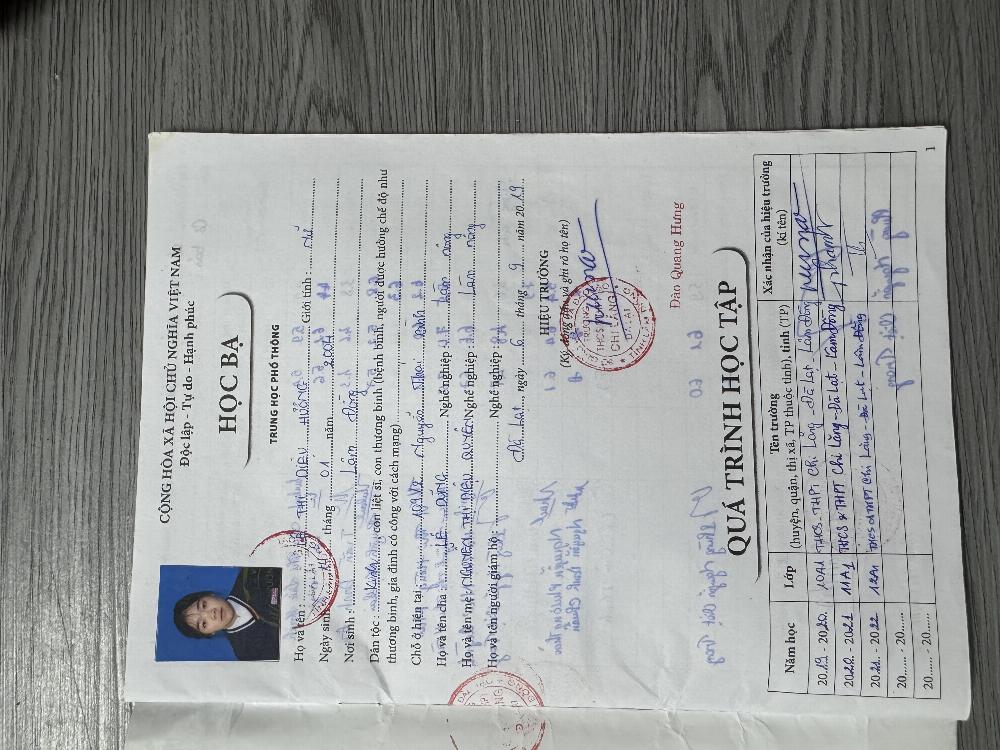 CỘNG HÒA XÃ HỘI CHỦ NGHĨA VIỆT NAM
Độc lập - Tự do - Hạnh phúc
HỌC BẠ
TRUNG HỌC PHỔ THÔNG
Họ và tên : LÊ THỊ DIỆU HƯƠNG Giới tính : Nữ
Ngày sinh tháng 01 năm 2004
Nơi sinh : Lâm Đồng
Dân tộc : Kinh con liệt sĩ, con thương binh (bệnh binh, người được hưởng chế độ như
thương binh, gia đình có công với cách mạng)
Chỗ ở hiện tại : Nguyễn
Họ và tên cha : LÊ DŨNG Nghề nghiệp : Làm nông
Họ và tên mẹ : NGUYỄN THỊ DIỆU QUYÊN Nghề nghiệp : Làm nông
Họ và tên người giám hộ : Nghề nghiệp :
Đà Lạt, ngày 6 tháng 9 năm 2019
HIỆU TRƯỞNG
(Ký, đóng dấu và ghi rõ họ tên)
Đào Quang Hưng
QUÁ TRÌNH HỌC TẬP
Năm học Lớp Tên trường (huyện, quận, thị xã, TP thuộc tỉnh), tỉnh (TP) Xác nhận của hiệu trưởng (kí tên)
2019 - 2020 10A1 THCS. THPT Chi Lăng - Đà Lạt - Lâm Đồng
2020 - 2021 11A1 THCS & THPT Chi Lăng - Đà Lạt - Lâm Đồng
2021 - 2022 12A1 THCS & THPT Chi Lăng - Đà Lạt - Lâm Đồng
20...... - 20......
20...... - 20......
1